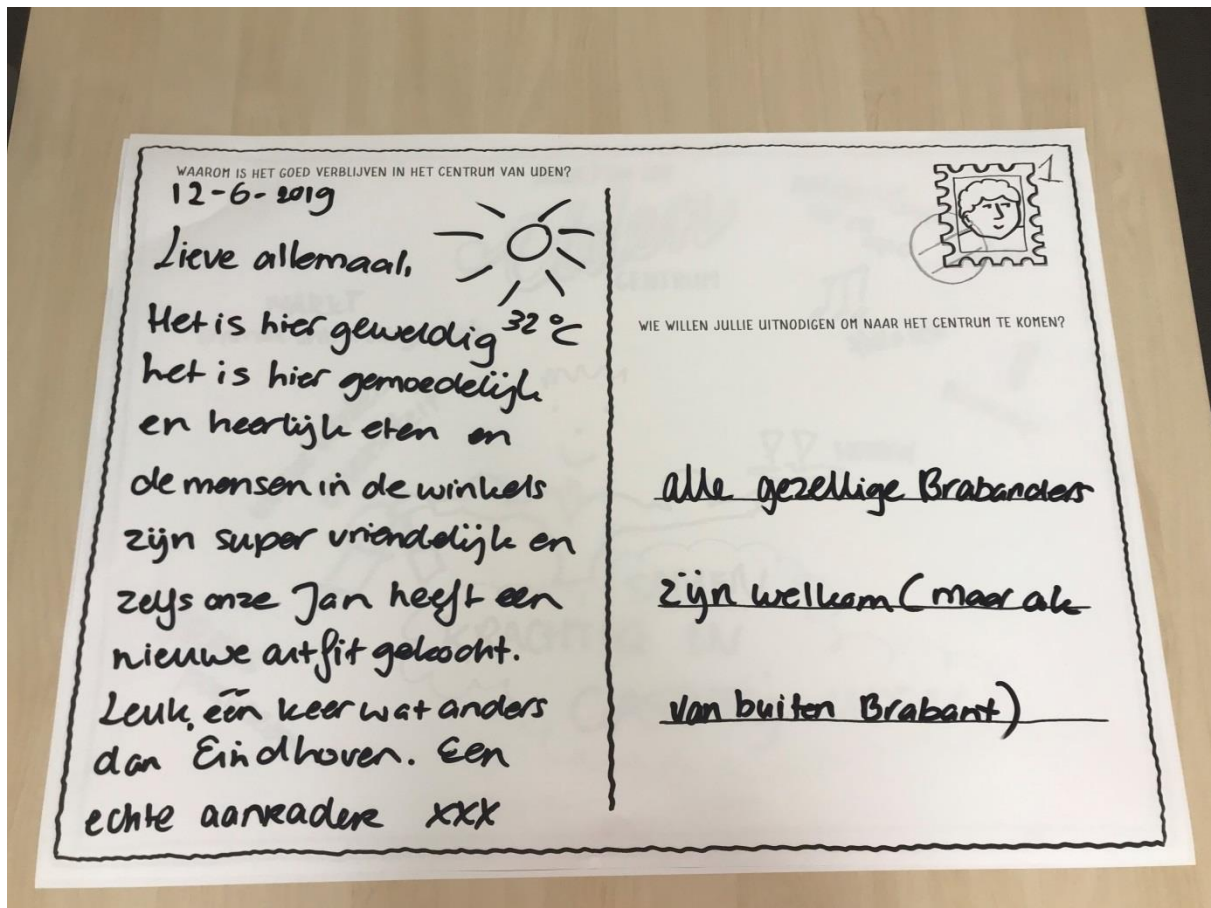 WAAROM IS HET GOED VERBLIJVEN IN HET CENTRUM VAN UDEN?
12-6-2019
Lieve allemaal,
Het is hier geweldig 32 °C
het is hier gemoedelijk
en heerlijk eten en
de mensen in de winkels
zijn super vriendelijk en
zelfs onze Jan heeft een
nieuwe outfit gekocht.
Leuk, één keer wat anders
dan Eindhoven. Een
echte aanrader xxx
1
WIE WILLEN JULLIE UITNODIGEN OM NAAR HET CENTRUM TE KOMEN?
alle gezellige Brabanders
zijn welkom (maar ook
van buiten Brabant)